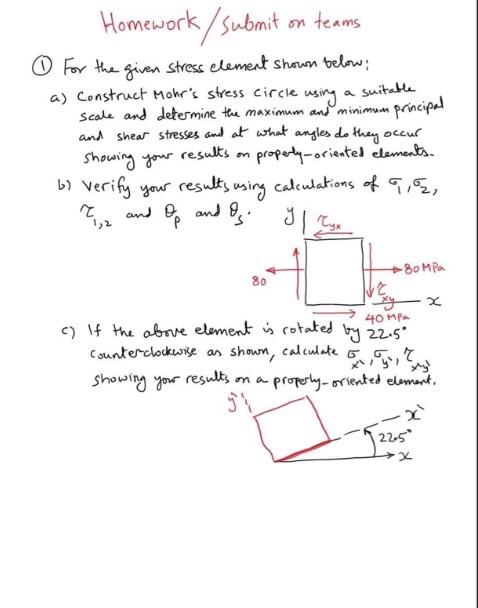 Homework/submit on teams
① For the given stress element shown below:
a) Construct Mohr's stress circle using a suitable
scale and determine the maximum and minimum principal
and shear stresses and at what angles do they occur
showing your results on properly-oriented elements.
b) Verify your results, using calculations of σ₁, σ₂,
τ₁,₂ and θp and θs.
y
τyx
80
80 MPa
τxy
x
40 MPa
c) If the above element is rotated by 22.5°
counterclockwise as shown, calculate σx', σy', τx'y'
showing your results on a properly-oriented element.
y'
x'
22.5°
x